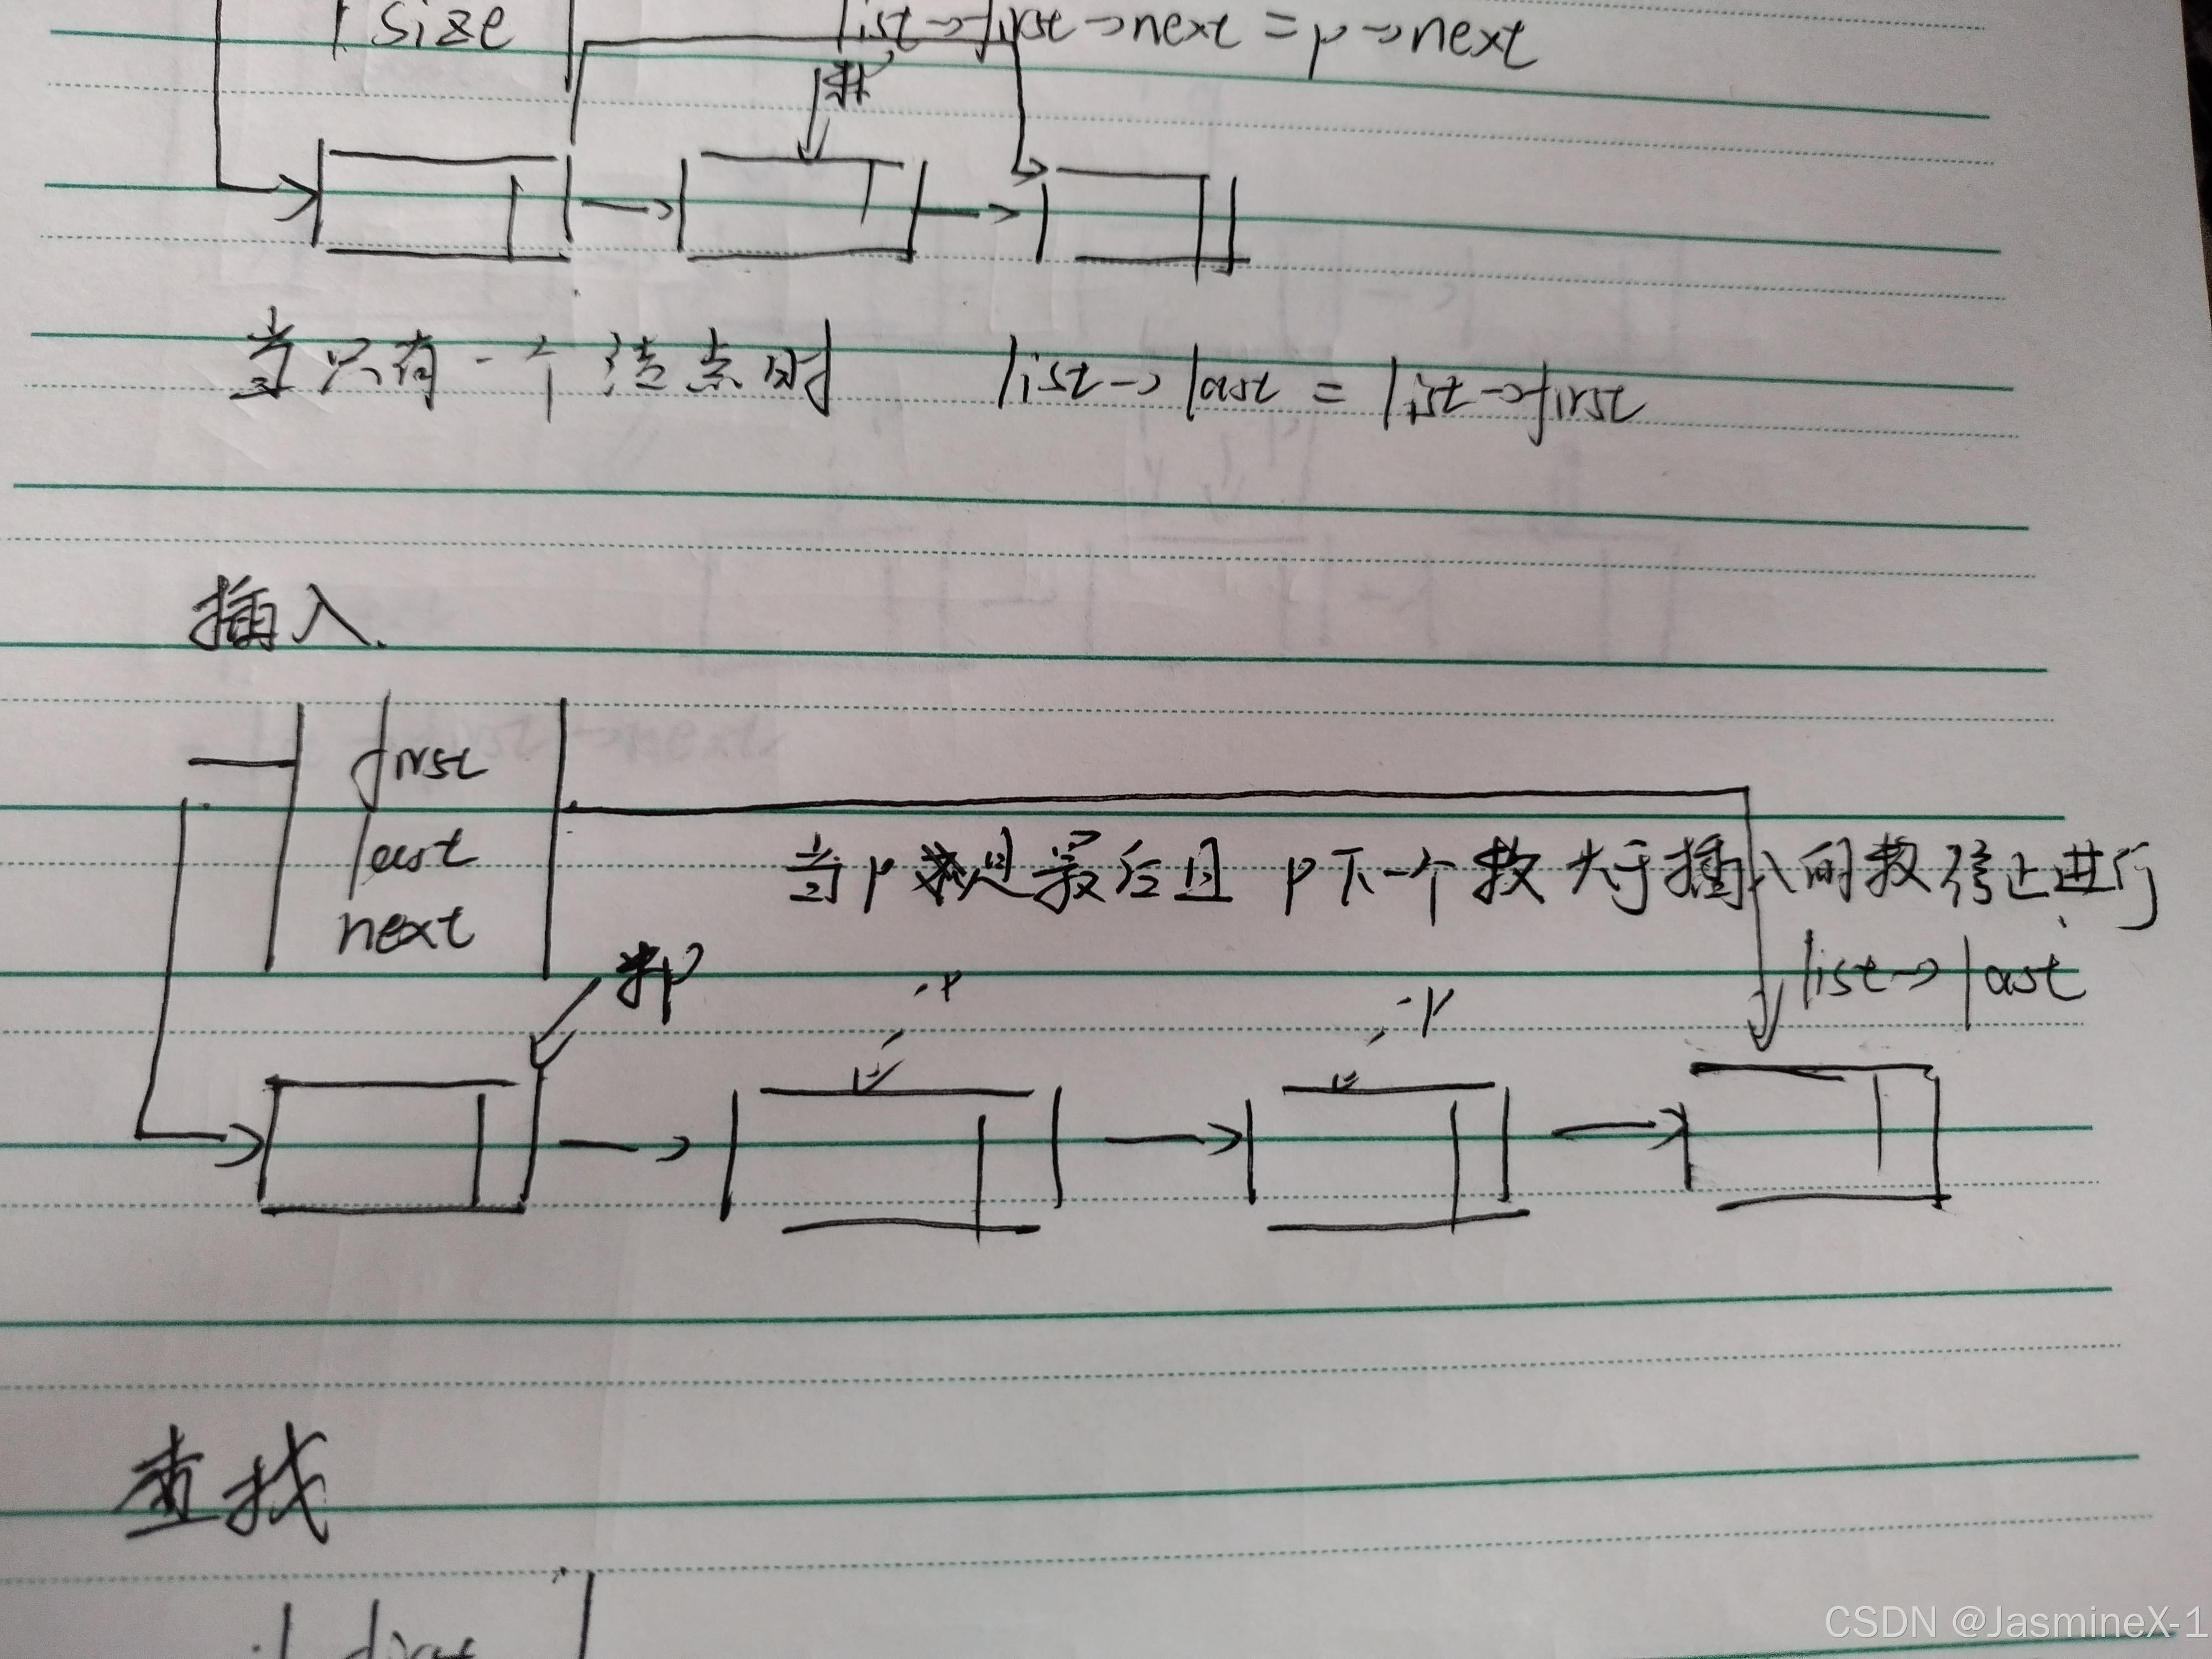 size
list->first->next = p->next
当只有一个结点时 list->last = list->first
插入.
first
last
next
当p是最后且 p下一个数大于插入的数停止进行
list->last
*p
查找
first
CSDN @JasmineX-1